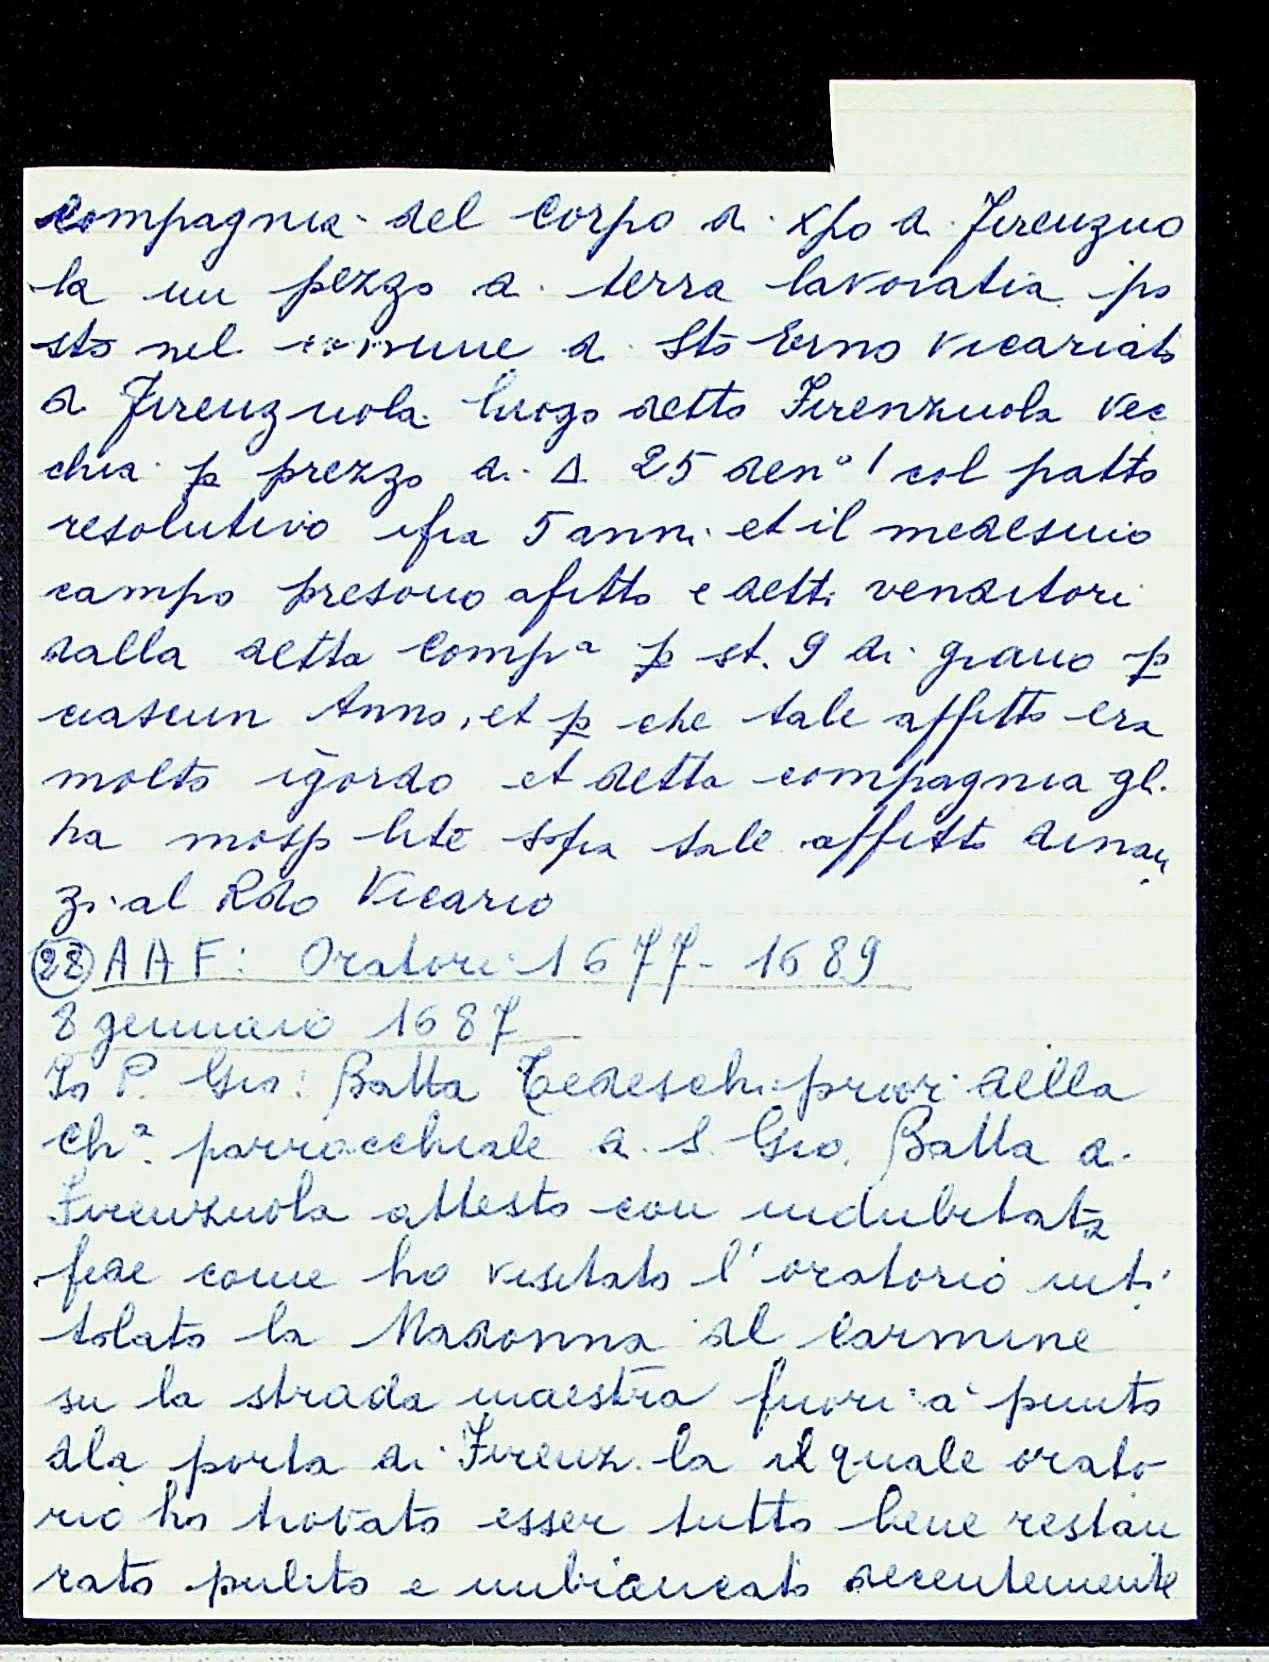 compagnia del Corpo di xpo di Firenzuo
la un pezzo di terra lavoratia po
sto nel comune di Sto Erno vicariato
di Firenzuola luogo detto Firenzuola Vec
chia p prezzo di Δ 25 den° 1 col patto
resolutivo ifra 5 anni et il medesimo
campo presono afitto e detti venditori
dalla detta Compª p st. 9 di grano p
ciascun Anno, et p che tale affitto era
molto īgordo et detta compagnia gli
ha mosp lite sopra tale affitto dinan
zi al Rdo Vicario
28 AAF: Oratori 1677-1689
8 gennaio 1687
Io P. Gio: Batta Tedeschi priori della
Chª parrocchiale di S. Gio. Batta di
Firenzuola attesto con indubitata
fede come ho visitato l'oratorio inti
tolato la Madonna del Carmine
su la strada maestra fuori a punto
dla porta di Firenz.la il quale orato
rio ho trovato esser tutto bene restau
rato pulito e imbiancato decentemente